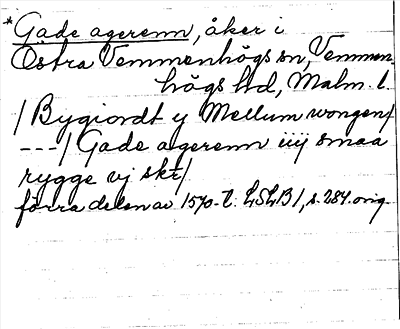 *Gade agerenn, åker i
Östra Vemmenhögs sn, Vemmen-
högs hd, Malm. l.
/ Bygiordt y Mellum wongen/
---/ Gade agerenn iiij smaa
rygge vj skr/
förra delen av 1570-t. LSLB 1, s. 284. orig.